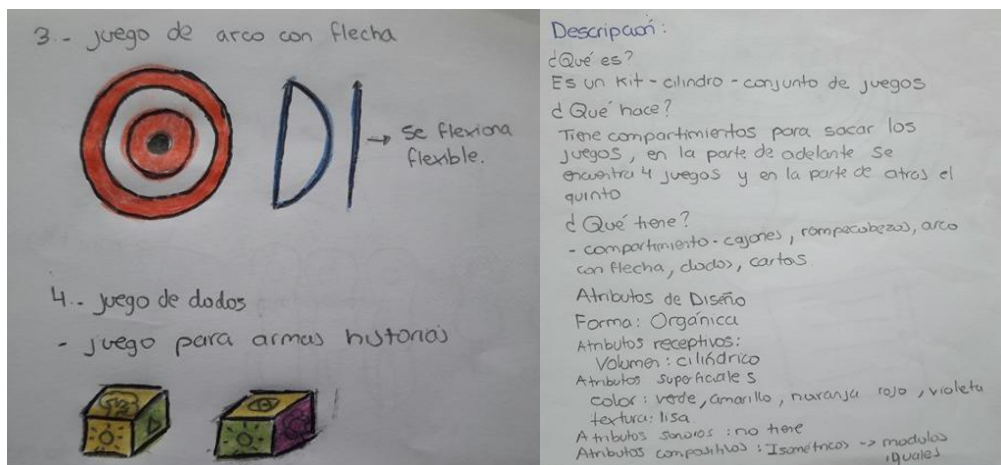 3.- juego de arco con flecha
→ se flexiona
flexible.
4.- juego de dados
- juego para armas historias
Descripción:
¿Qué es?
Es un kit - cilindro - conjunto de juegos
¿Qué hace?
Tiene compartimientos para sacar los
juegos, en la parte de adelante se
encuentra 4 juegos y en la parte de atras el
quinto
¿Qué tiene?
- compartimiento - cajones, rompecabezas, arco
con flecha, dados, cartas
Atributos de Diseño
Forma: Orgánica
Atributos receptivos:
Volumen: cilíndrico
Atributos superficiales
color: verde, amarillo, naranja rojo, violeta
textura: lisa
Atributos sonoros: no tiene
Atributos compositivos: Isométricos -> modulos
iguales